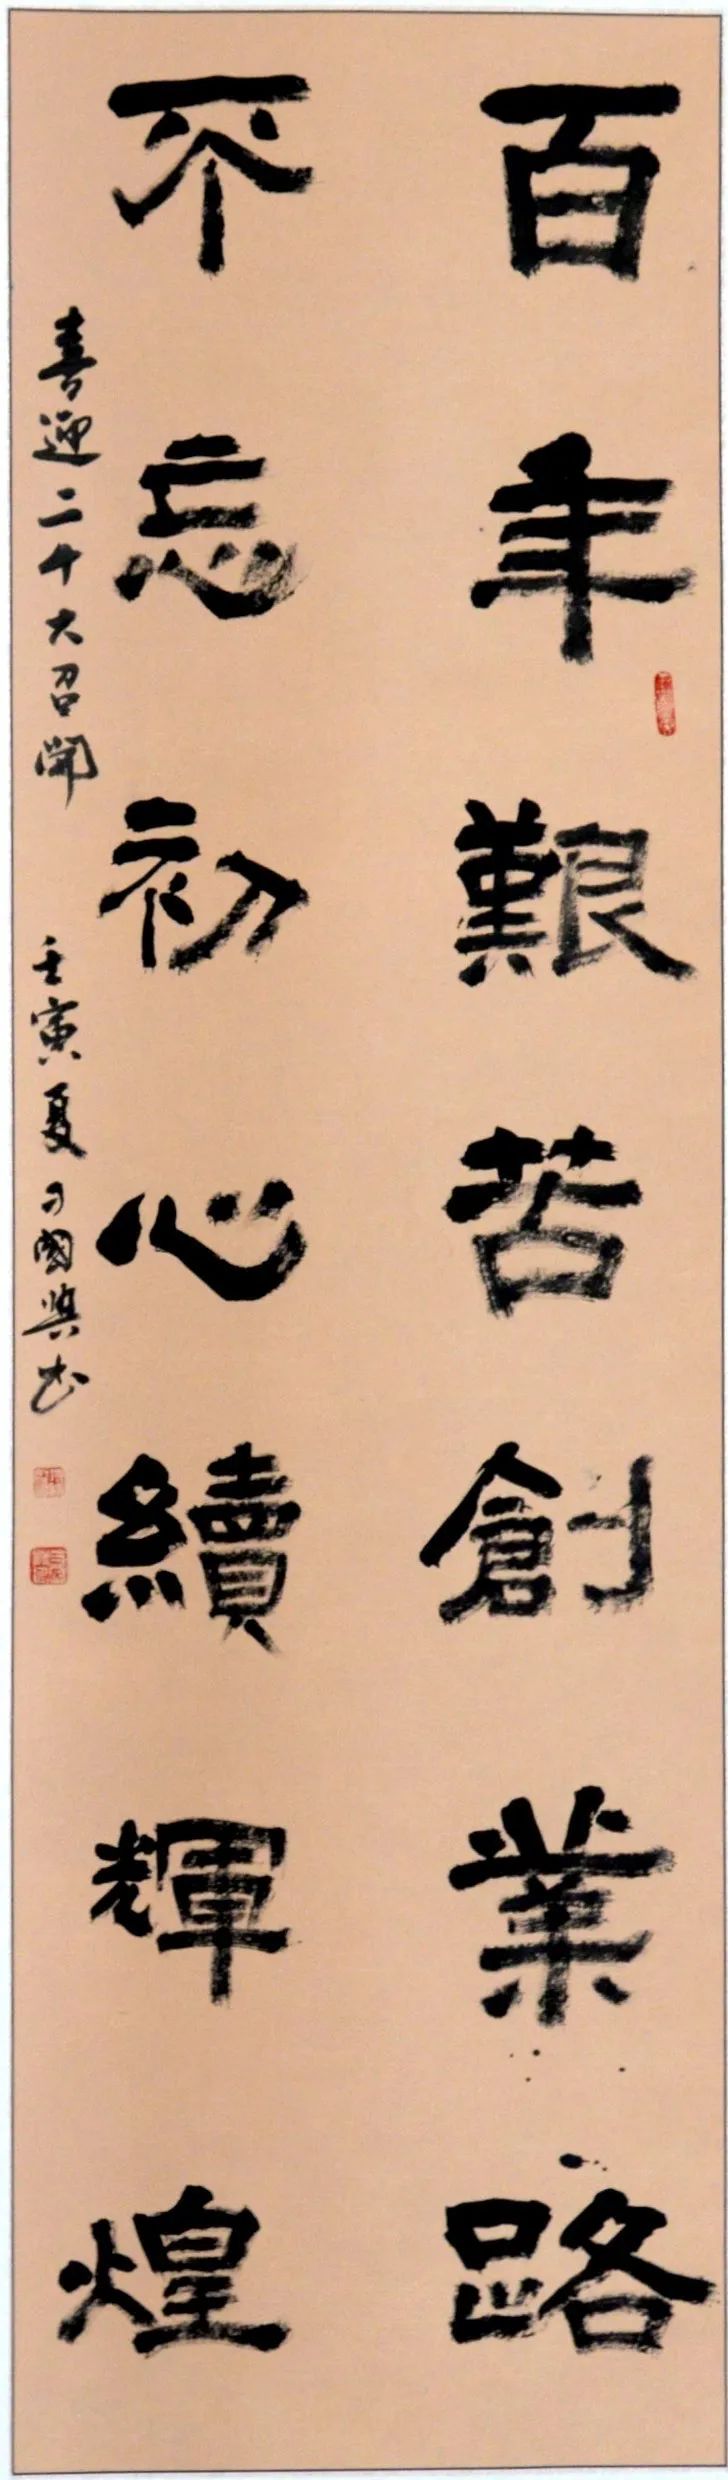 百年艱苦創業路
不忘初心續輝煌
喜迎二十大召開
壬寅夏刁國興书